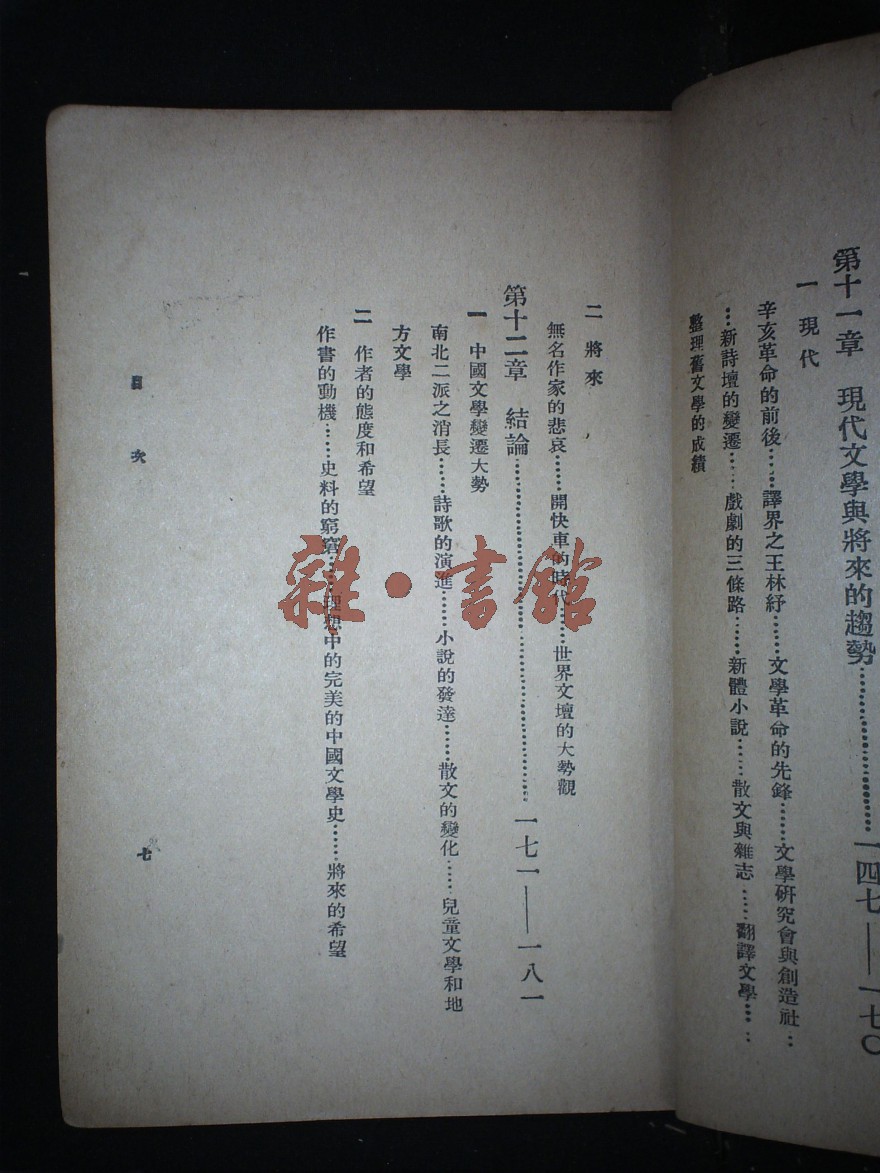 第十一章　現代文學與將來的趨勢…………………一四七——一七〇
一　現代
辛亥革命的前後……譯界之王林紓……文學革命的先鋒……文學研究會與創造社‥
…新詩壇的變遷……戲劇的三條路……新體小說……散文與雜志……翻譯文學…‥
整理舊文學的成績
二　將來
無名作家的悲哀……開快車的時代……世界文壇的大勢觀
第十二章　結論………………………………………一七一——一八一
一　中國文學變遷大勢
南北二派之消長……詩歌的演進……小說的發達……散文的變化……兒童文學和地
方文學
二　作者的態度和希望
作書的動機……史料的窮窘……理想中的完美的中國文學史……將來的希望
目　次
七
雜·書館